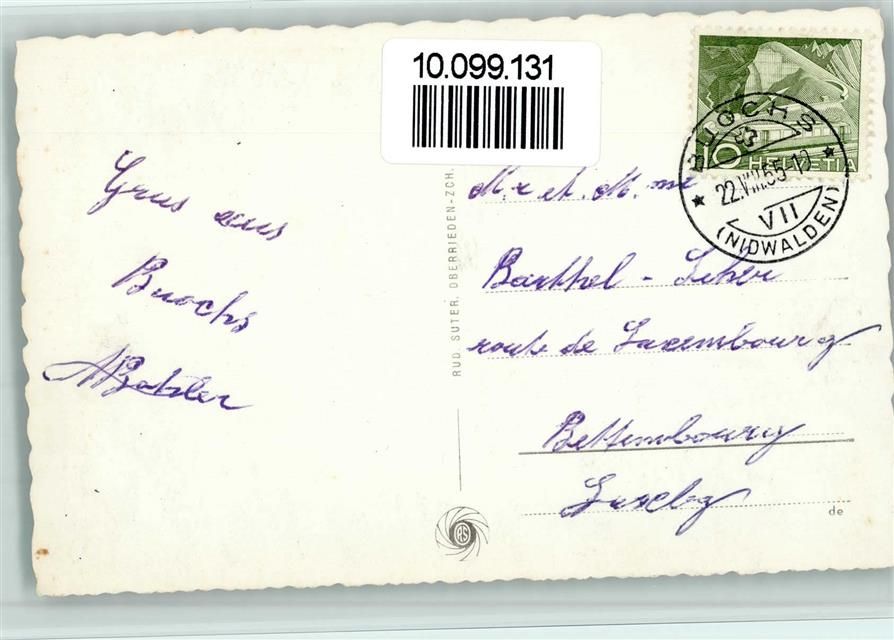 10.099.131
Grus aus
Buochs
10
HELVETIA
BUOCHS
22.VIII.55-12
VII
(NIDWALDEN)
RUD. SUTER, OBERRIEDEN-ZCH.
M.r et. M.me
Barthel - Scher
route de Luxembourg
Bettembourg
Luxbg
de